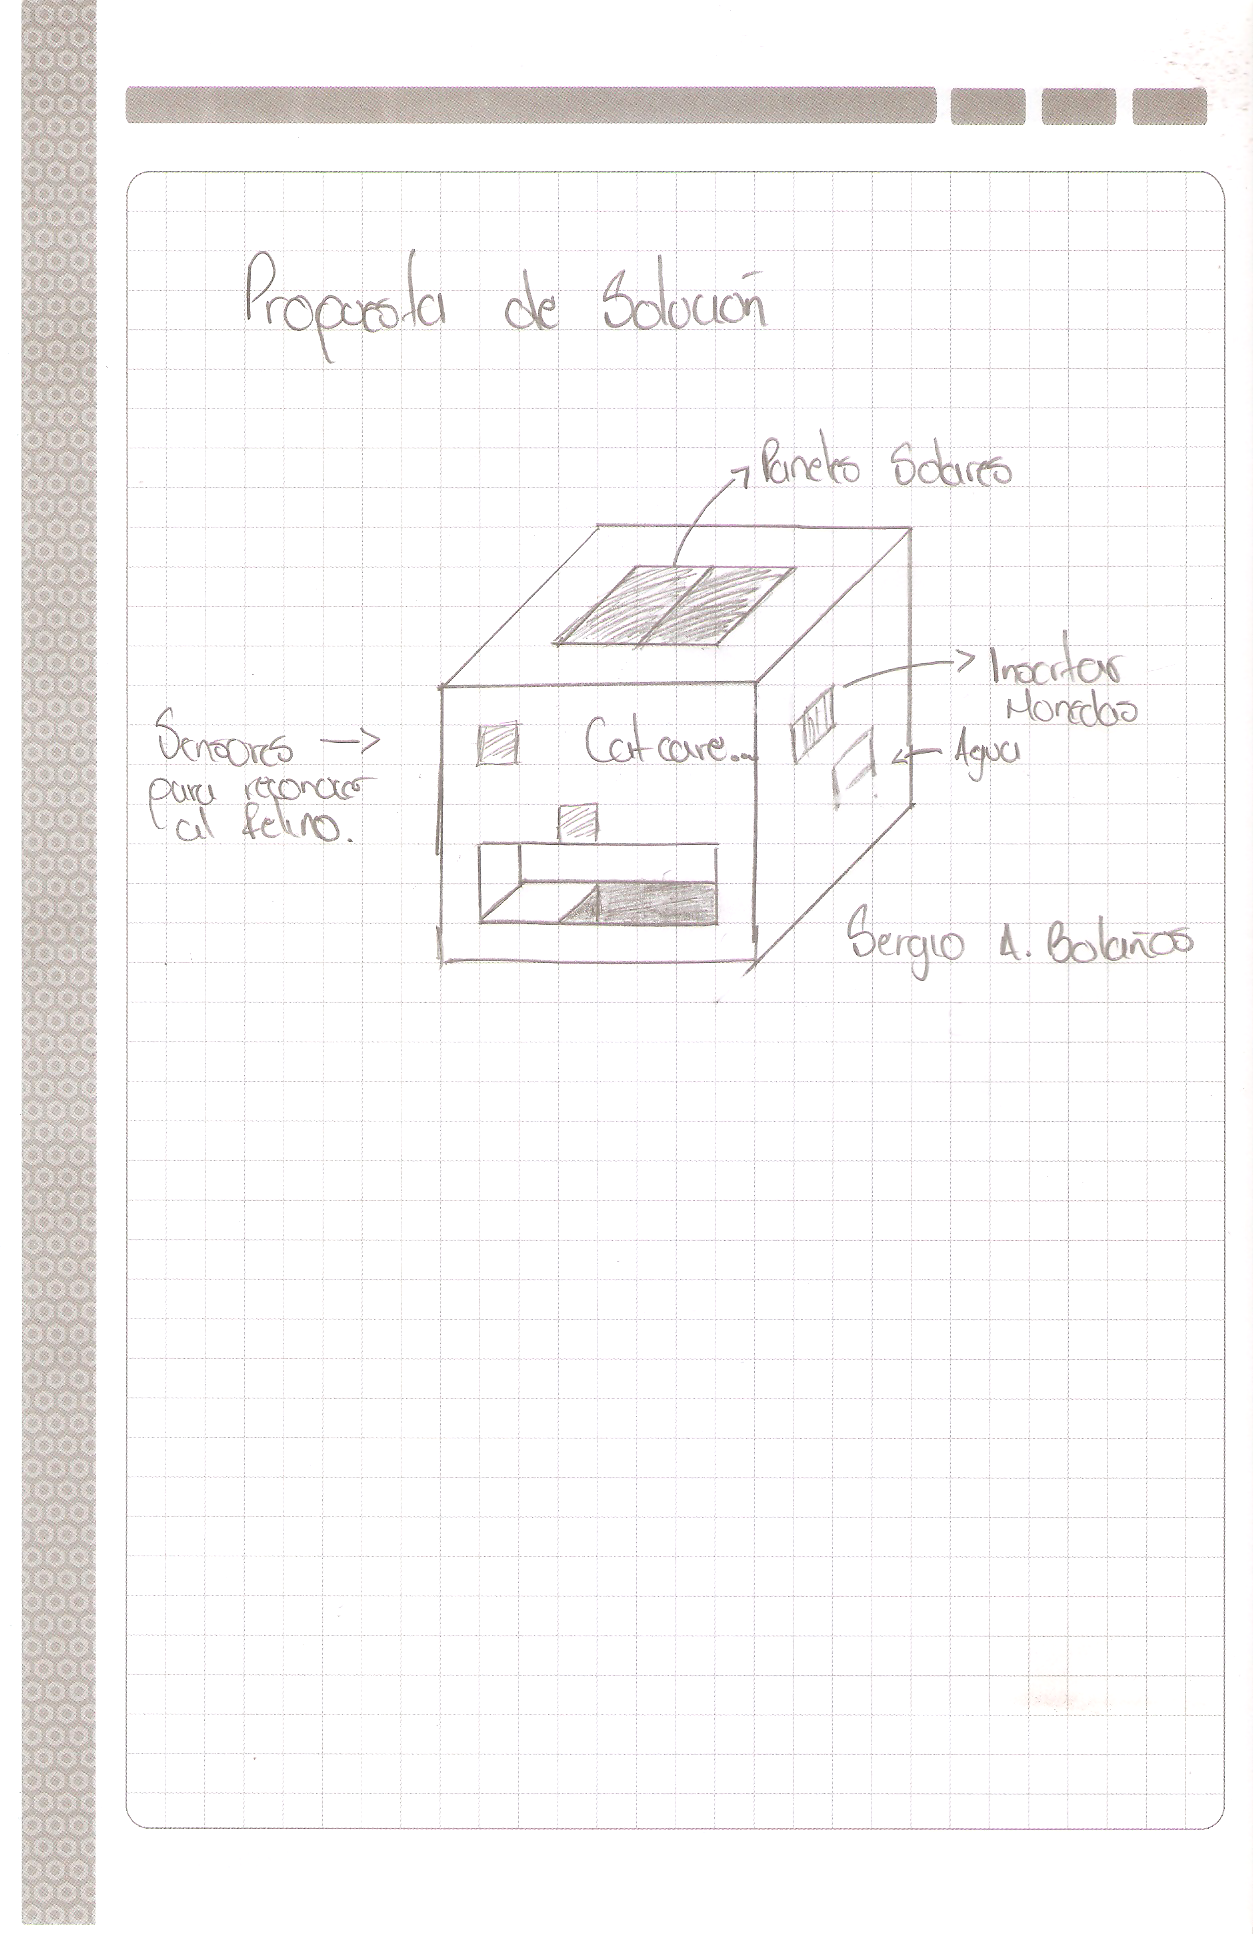 Propuesta de Solución
Paneles Solares
Insertar
Monedas
Sensores →
para reconocer
al felino.
Cat care...
Agua
Sergio A. Bolaños